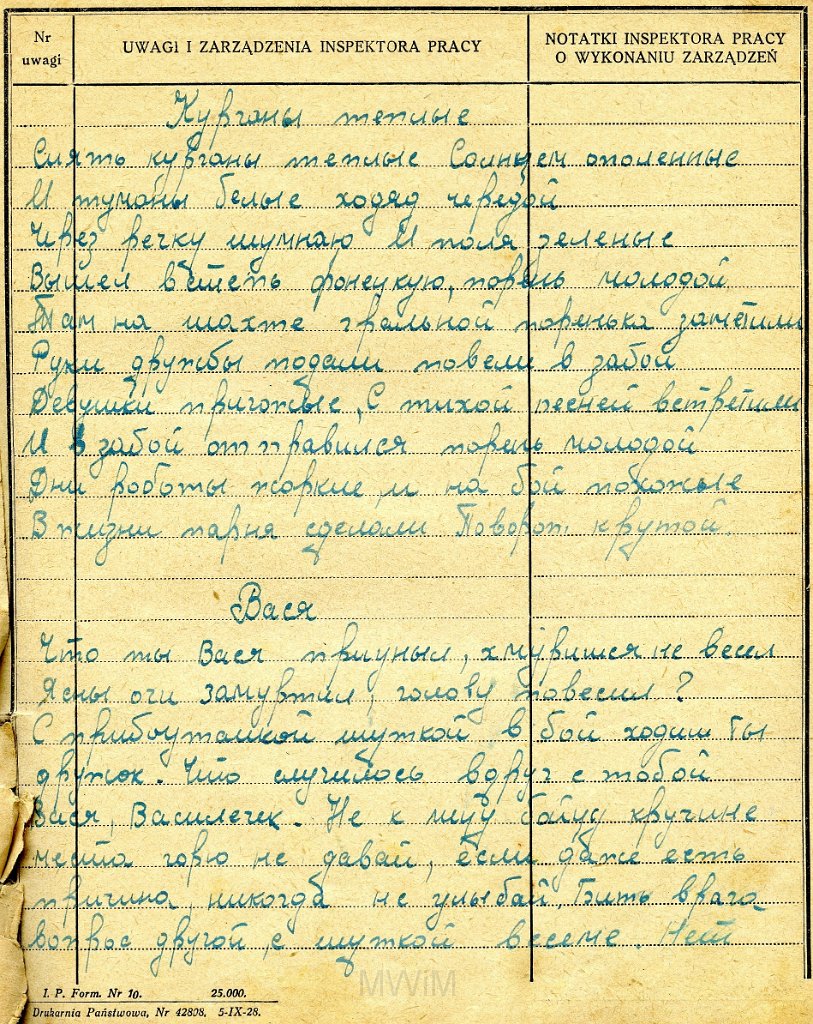 Nr
uwagi
UWAGI I ZARZĄDZENIA INSPEKTORA PRACY
NOTATKI INSPEKTORA PRACY
O WYKONANIU ZARZĄDZEŃ
Курганы теплые
Спять курганы теплые Солнцем ополенные
И туманы белые ходяд чередой
Через речку шумнаю И поля зеленые
Вышел в степь донецкую, парень молодой
Там на шахте гральной паренька заметили
Руки дружбы подали повели в забой
Девушки пригожые, С тихой песней встретили
И в забой отправился парень молодой
Дни работы жаркие, и на бой похожые
В жизни парня сделали Поворот крутой.
Вася
Что ты Вася приуныл, хмуришся не весел
Ясны очи замуртил, голову повесил?
С прибоуташкой шуткой в бой ходил ты
дружок. Что случилось вдруг с тобой
Вася, Василечек. Не к лицу байуд кручине
места горю не давай, если даже есть
причина, никогда не улыбай, Бить врага
вопрос другой, с шуткой веселе. Нет
I. P. Form. Nr 10. 25.000.
Drukarnia Państwowa, Nr 42808. 5-IX-28.
MWiM